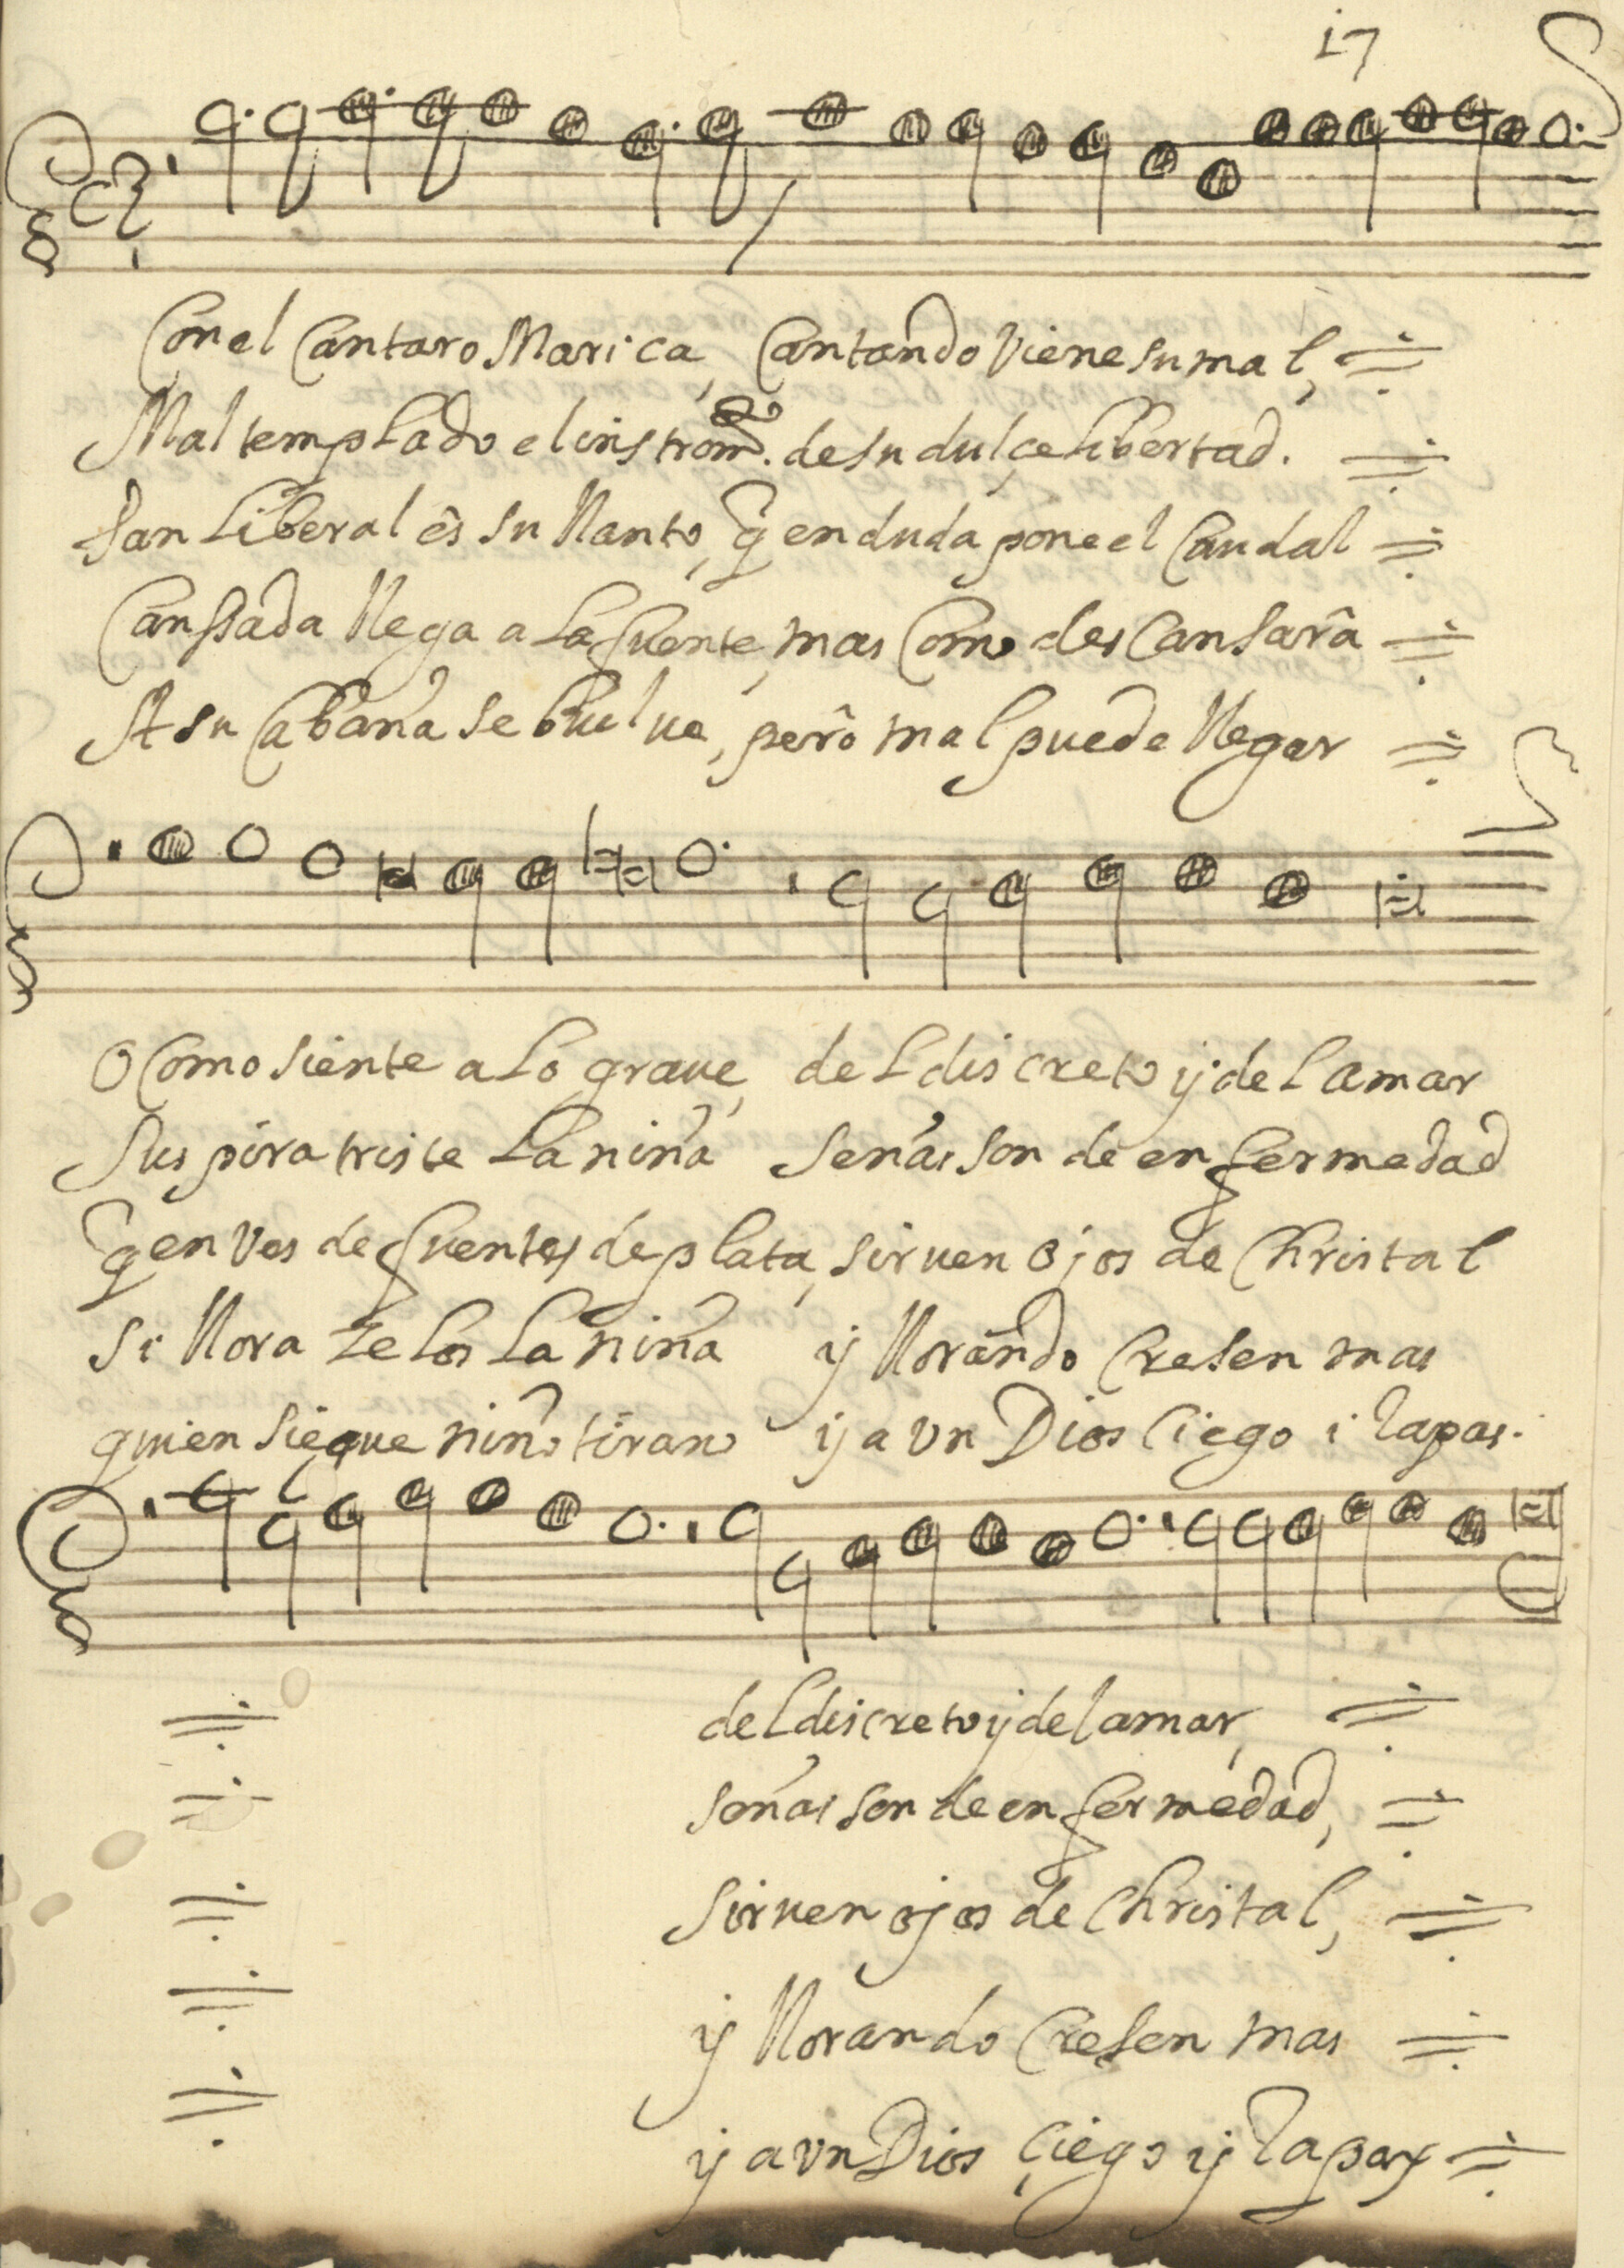 17
Con el Cantaro Marica, Cantando viene su mal,
Mal templado el instromto. de su dulçe libertad.
Tan liberal ês su llanto, q̃ en duda pone el Caudal
Canssada llega a la fuente, mas Como descansarâ
A su Cabaña se buelue, perô mal puede llegar
O Como siente a lo graue, del discreto ÿ del amar
Suspira triste la niña señas son de enfermedad
q̃ en ves de fuentes de plata, siruen ojos de Christal
si llora zelos la niña ÿ llorando Cresen mas
quien sigue niño tirano ÿ a vn Dios Ciego i rapas.
del discreto ÿ del amar,
señas son de enfermedad,
siruen ojos de Christal,
ÿ llorando Cresen mas
ÿ a vn Dios çiego ÿ rapas